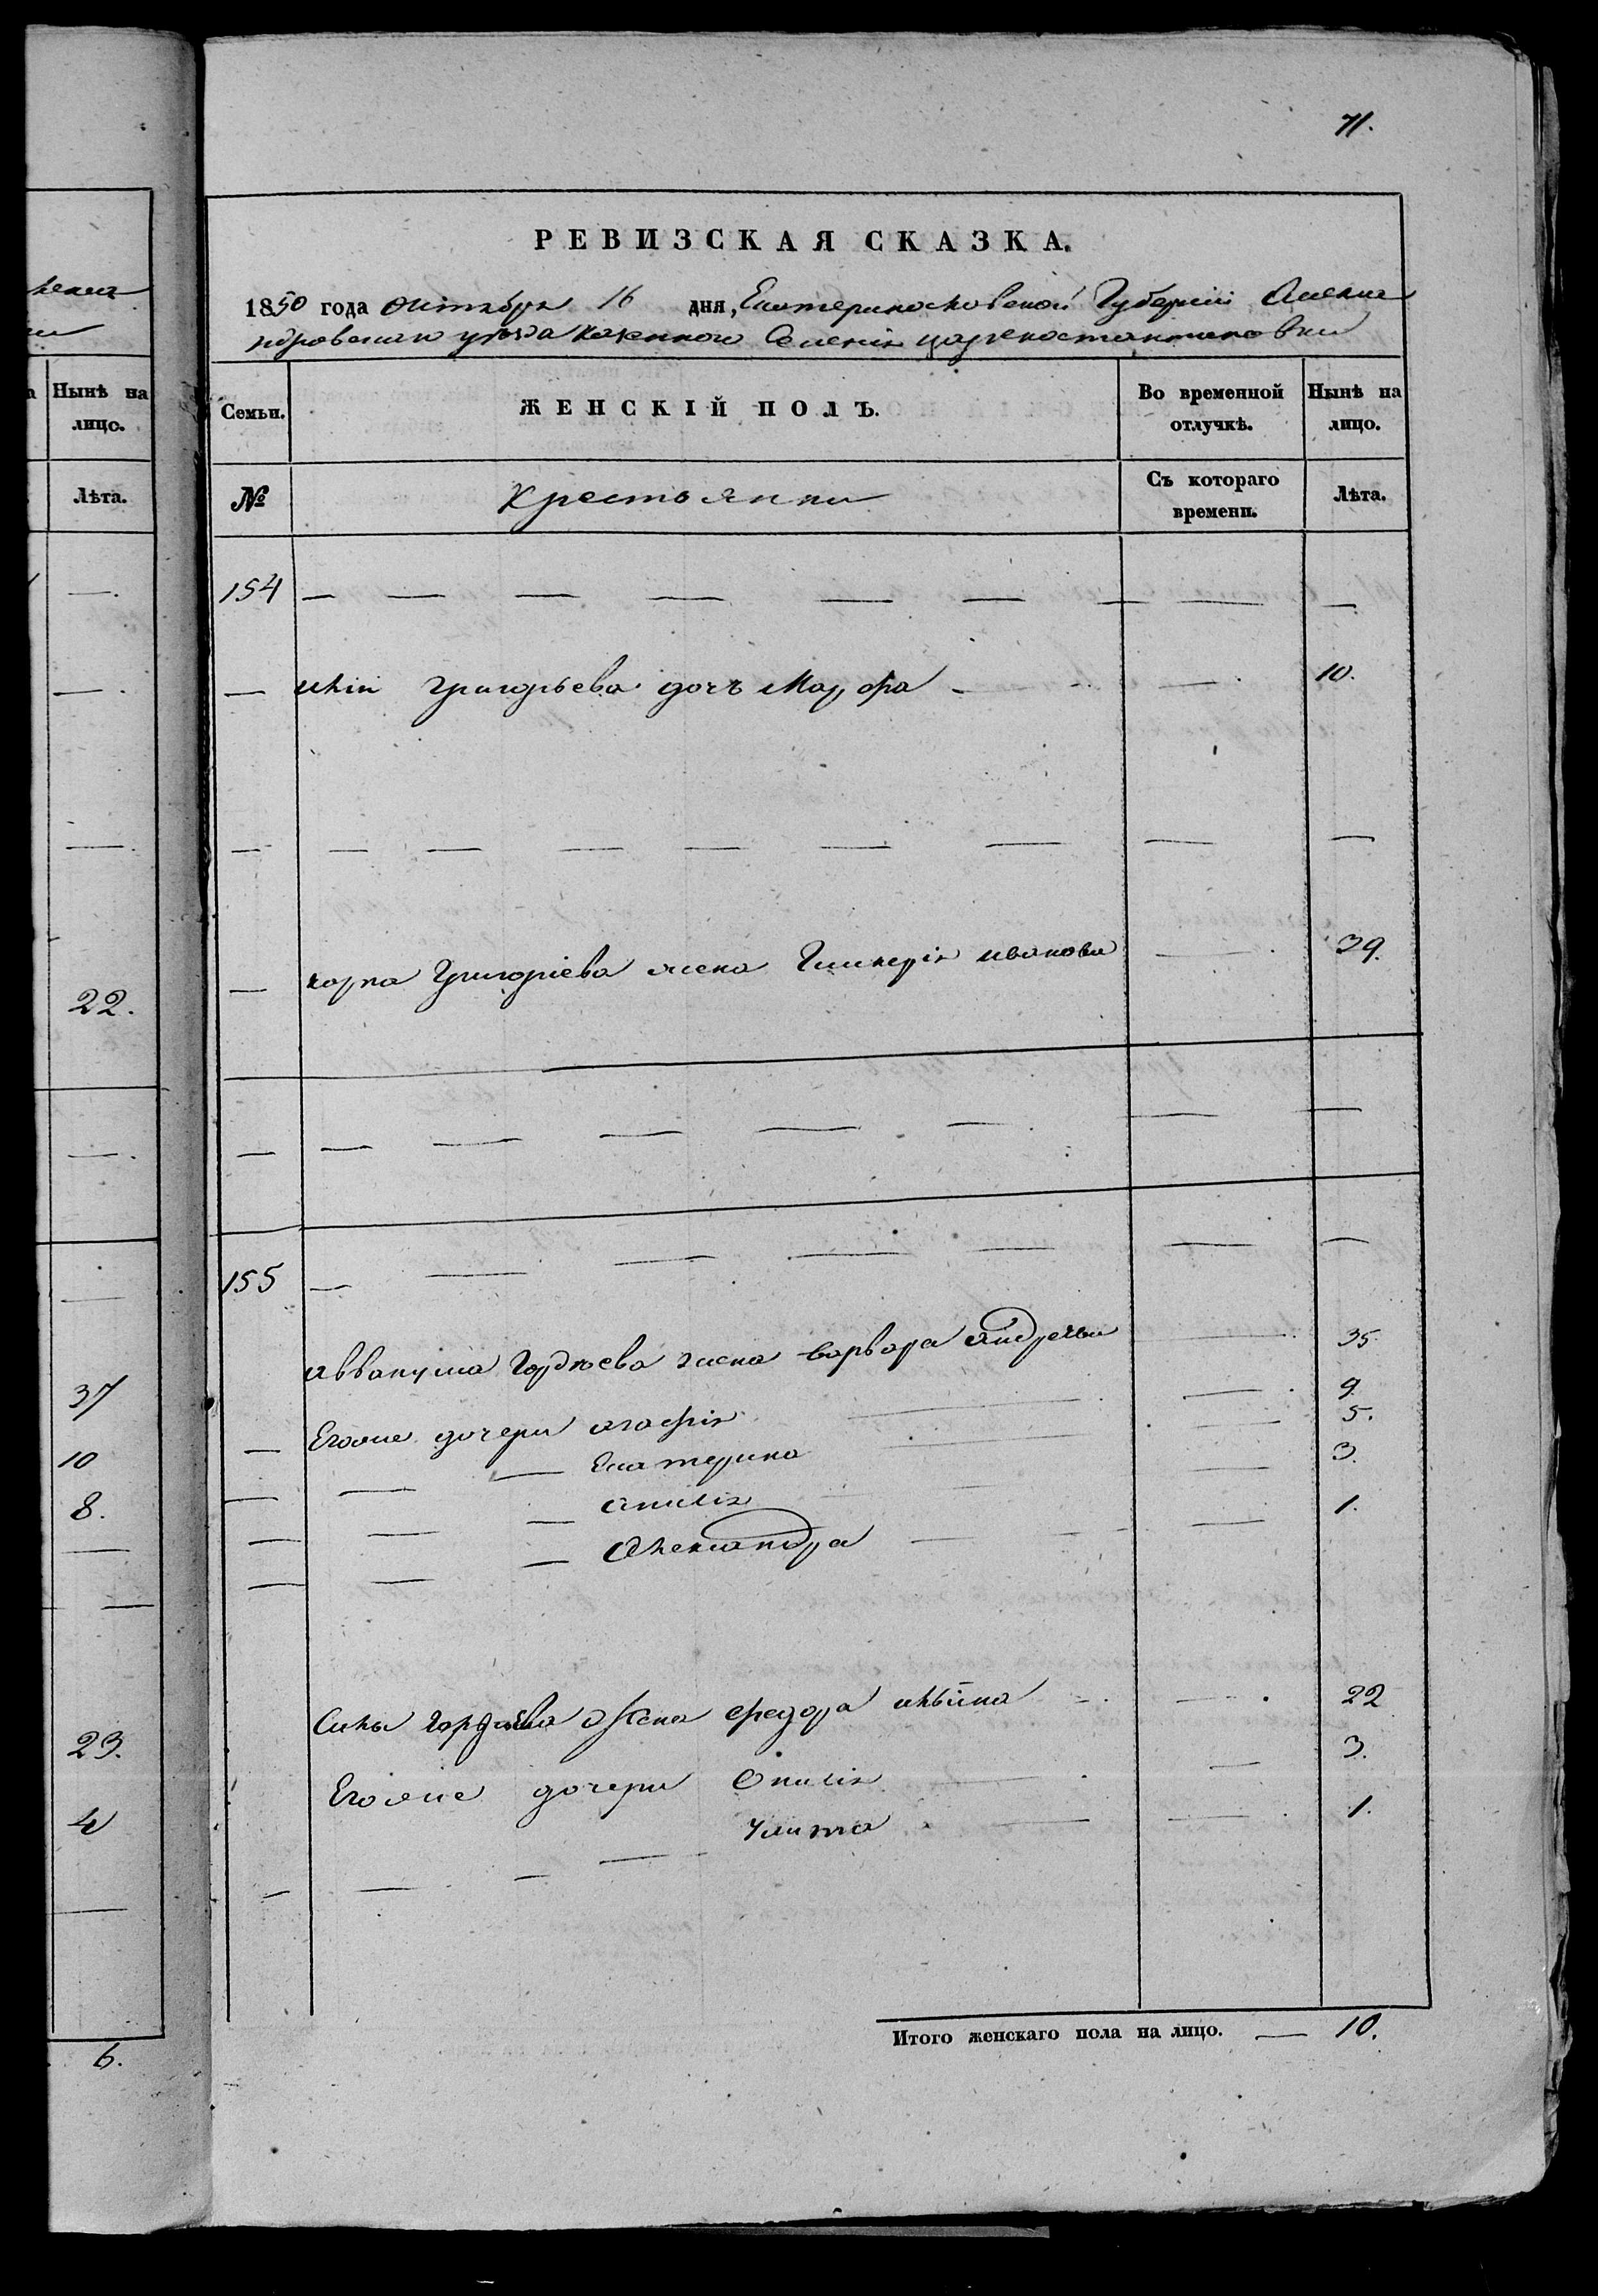 71.
РЕВИЗСКАЯ СКАЗКА.
1850 года октября 16 дня, Екатеринославской Губерніи Алекса
ндровскаго уѣзда казенного Селенія цареконстантиновки
Нынѣ на лицо.
Семьи. ЖЕНСКІЙ ПОЛЪ. Во временной отлучкѣ. Нынѣ на лицо.
Лѣта.
№ Крестьянки Съ котораго времени. Лѣта.
154 — — — — — — — — —
— Григорьева дочь Марфа — — 10.
— — — — — — — — —
22.
— карпа Григоріева жена Гликерія иванова — 39.
— — — — — — — —
155 — — — — — — —
аввакума Гордѣева жена варвара андреева — 35
37
— Егоже дочери агафія — — 9
10
— — — Екатерина — — 5.
8.
— — — акилія — — 3.
— — — Александра — — 1.
Силы гордѣева жена федора — — 22
23.
Егоже дочери Акилія — — 3.
4
— — — — Улита — — 1.
Итого женскаго пола на лицо. — 10.
6.